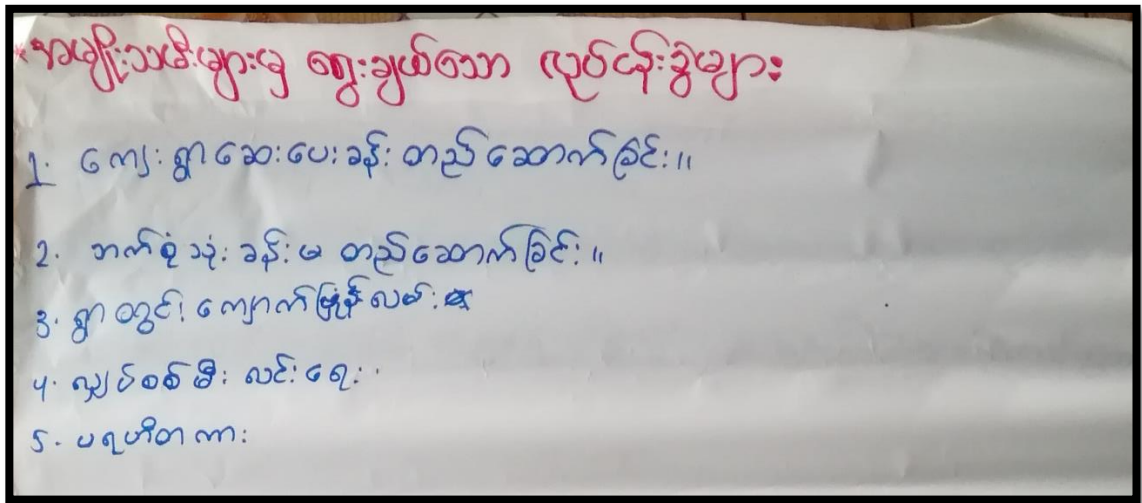 * အမျိုးသမီးများမှ ရွေးချယ်သော လုပ်ငန်းခွဲများ
1. ကျေးရွာဆေးပေးခန်း တည်ဆောက်ခြင်း။
2. ဘက်စုံသုံးခန်းမ တည်ဆောက်ခြင်း။
3. ရွာတွင်း ကျောက်ဖြုန်လမ်း
4. လျှပ်စစ်မီး လင်းရေး
5. ပရဟိတကား